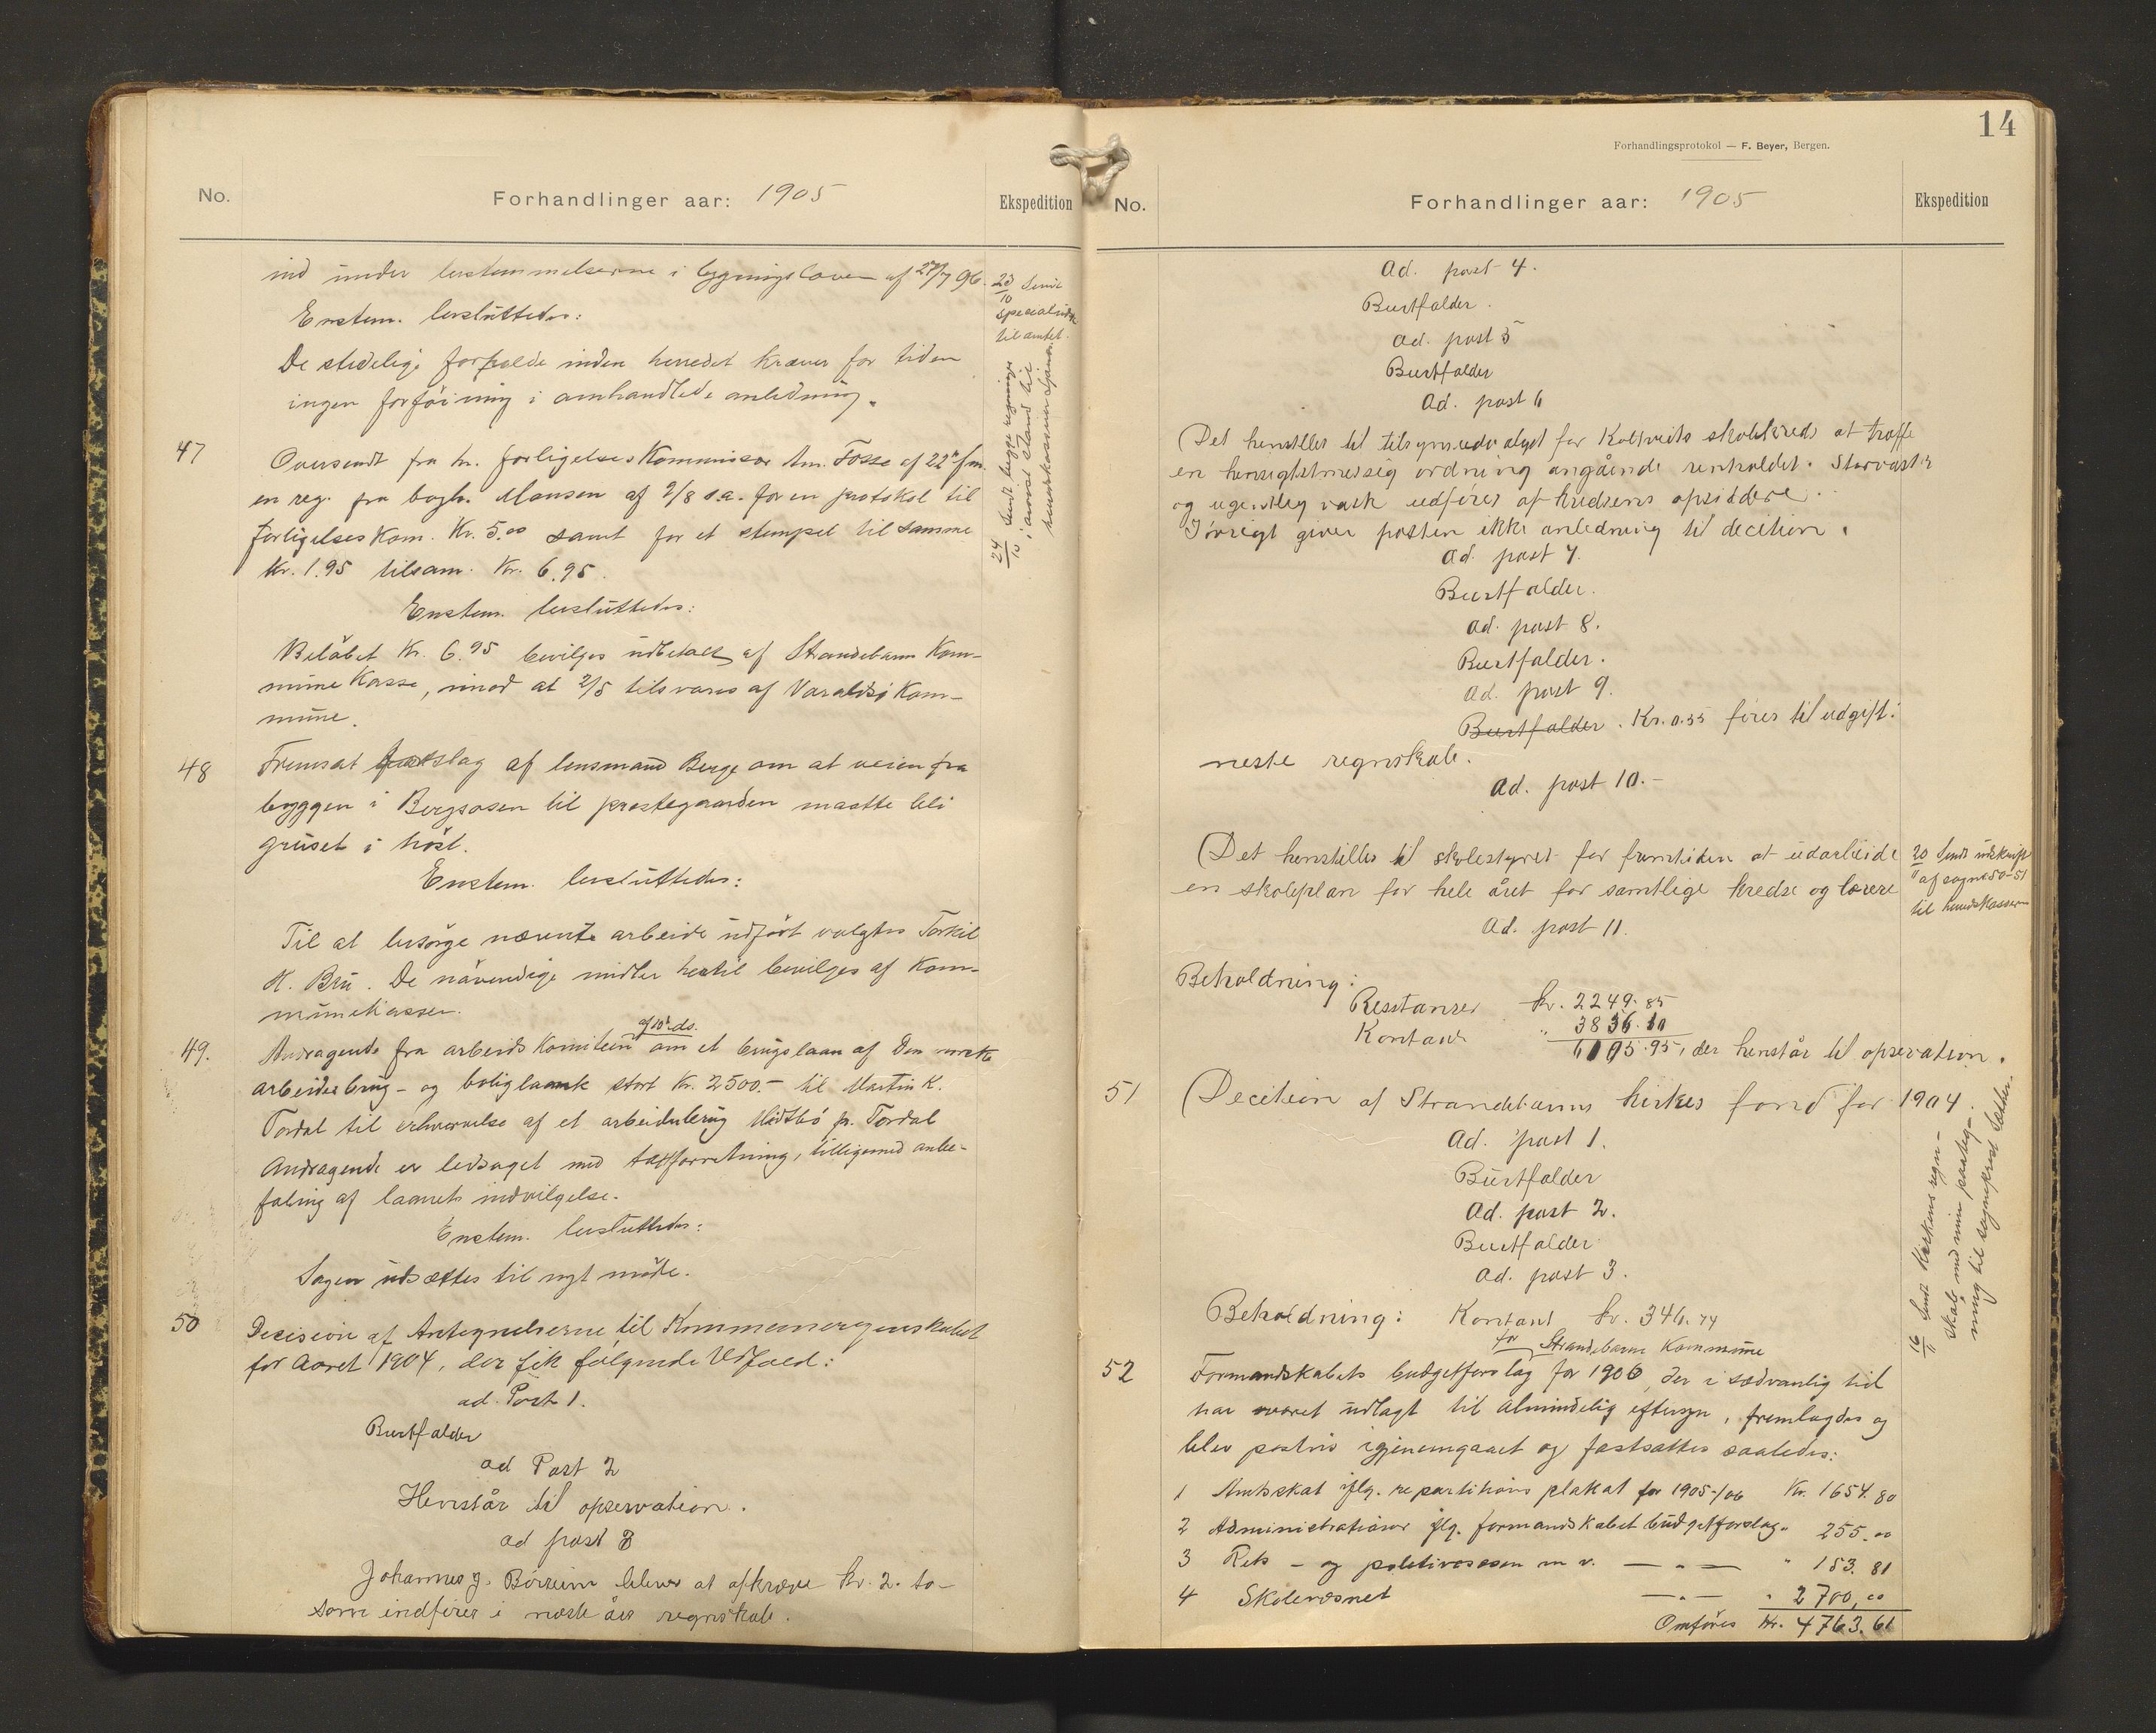 No.
Forhandlinger aar: 1905
Ekspedition
ind under bestemmelserne i bygningsloven af 27/7 96.
Enstem. besluttedes:
De stedelige forholde inden herredet kræver for tiden
ingen forföining i omhandlede anledning.
23/10 Sendt
specialudsk.
til amtet.
24/10 Sendt begge regninger
, anvist stand til
herredskasserer
47
Oversendt fra hr. forligelseskommissær Am. Fosse af 22' f.m.
en reg. fra bogh. Monsen af 9/8 d.a. for en protokol til
forligelseskom. Kr. 5.00 samt for et stempel til samme
Kr. 1.95 tilsam. Kr. 6.95.
Enstem. besluttedes:
Belöbet Kr. 6.95 bevilges udbetalt af Strandebarm Kom-
mune Kasse, imod at 2/5 tilsvares af Varaldsö Kom-
mune.
48
Fremsat forslag af lensmand Berge om at veien fra
bryggen i Bergsosen til prestegaarden maatte bli
gruset i höst.
Enstem. besluttedes:
Til at besörge nævnte arbeide udfört valgtes Torkil
K. Bru. De nävendige midler hertil bevilges af Kom-
munekassen.
49.
Andragende fra arbeidskomiteen af 10' ds. om et brugslaan af Den norske
arbeiderbrug- og boliglaank stort Kr. 2500.- til Martin K.
Tordal til erhvervelse af et arbeiderbrug Midtbö pr. Tordal
Andragende er ledsaget med taxtforretning, tilligemed anbe-
faling af laanets indvilgelse.
Enstem. besluttedes:
Sagen udsættes til nyt möde.
50
Decision af Antegnelserne til Kommuneregnskabet
for Aaret 1904, der fik fölgende Udfald:
ad. Post 1.
Bortfalder
ad Post 2
Henstår til opservation.
ad post 3
Johannes J. Börseim bliver at afkræve kr. 2. to-
som indföres i næste års regnskab.
14
Forhandlingsprotokol — F. Beyer, Bergen.
No.
Forhandlinger aar: 1905
Ekspedition
Ad. post 4.
Bortfalder.
ad. post 5
Bortfalder
Ad. post 6
Det henstilles til tilsynsudvalget for Koltveits skolekreds at træffe
en hensigtsmessig ordning angående renholdet. Storvask
og ugentlig vask udföres af kredsens opsiddere.
Iövrigt giver posten ikke anledning til decition.
Ad. post 7.
Bortfalder.
ad. post 8.
Bortfalder.
ad. post 9.
Bortfalder. Kr. 0.55 föres til udgift i
neste regnskab.
Ad. post 10.-
Det henstilles til skolestyret for fremtiden at udarbeide
en skoleplan for hele året for samtlige kredse og lærere
20/11 Sendt udskrift
af sagne 50-51
til herredskasserer
Ad. post 11.
Beholdning:
Resstanser kr. 2249.85
Kontant " 3836.10
6105.95, der henstår til opservation.
51
Decition af Strandebarms kirkes fond for 1904.
Ad. post 1.
Bortfalder
Ad. post 2.
Bortfalder
Ad. post 3.
Beholdning: Kontant kr. 346.74
16/11 Sendt Kirkens regn-
skab med min paateg-
ning til sogneprest Sætter.
52
for Strandebarm Kommune
Formandskabets budgetforslag for 1906, der i sædvanlig tid
har været udlagt til almindelig eftersyn, fremlagdes og
blev postvis igjennemgaaet og fastsattes saaledes:
1 Amtsskat iflg. repartitions plakat for 1905-/06 Kr. 1654.80
2 Administrationer iflg. formandskabet budgetforslag " 255.00
3 Rets- og politivæsen m. v. — " — " 153.81
4 Skolevæsnet — " — " 2700,00
Omföres Kr. 4763.61